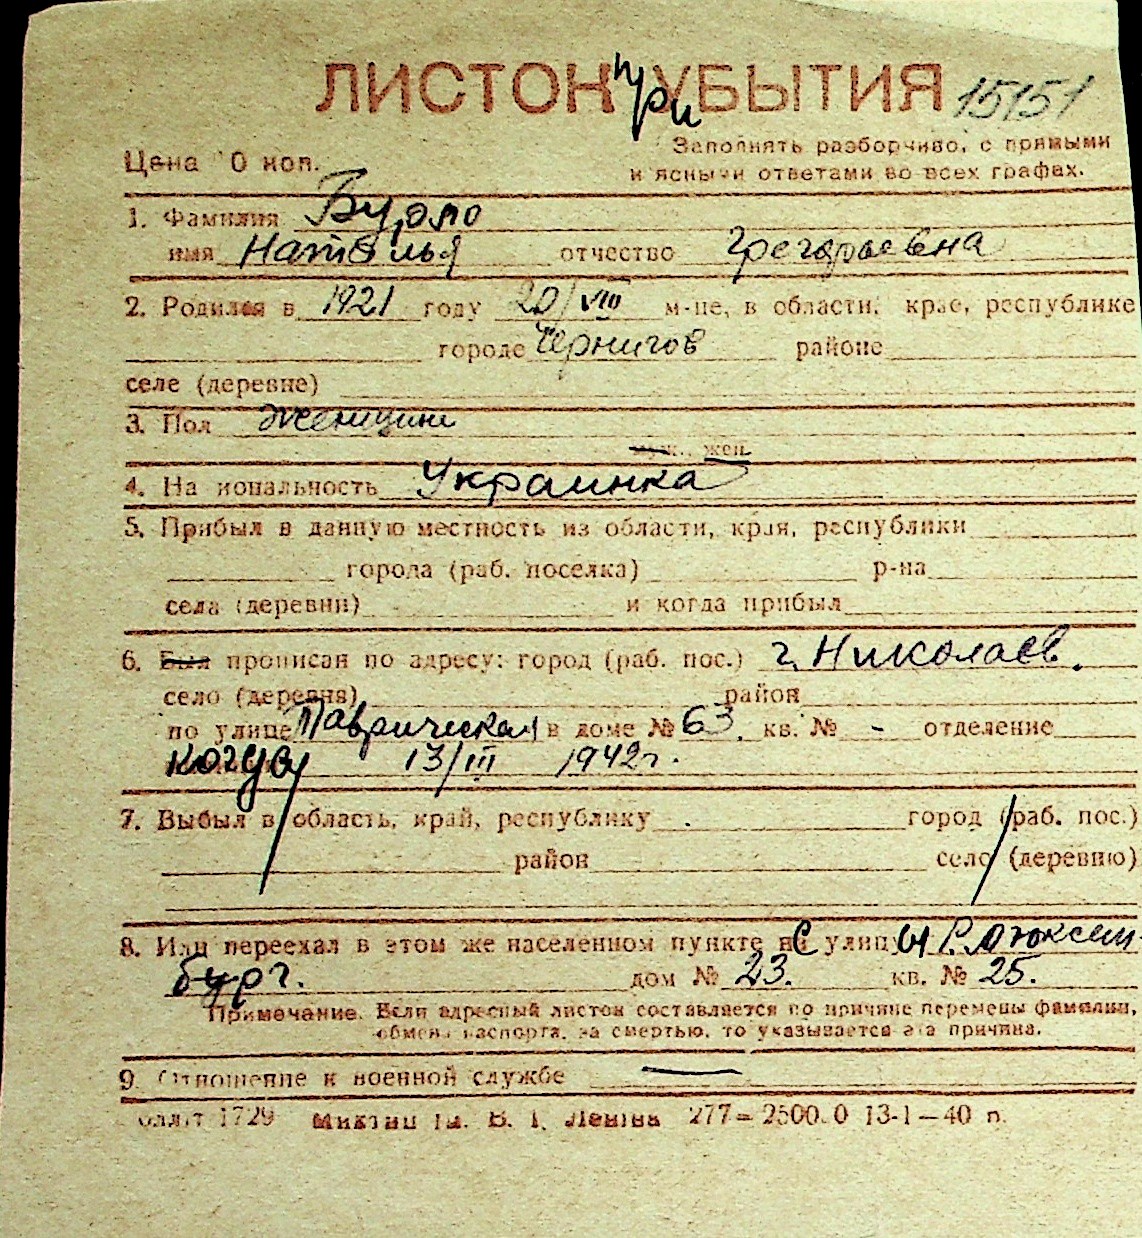 ЛИСТОН при УБЫТИЯ 15151
Цена 0 коп. Заполнять разборчиво, с прямыми
и ясными ответами во всех графах.
1. Фамилия Бурло
имя Наталья отчество Грегораевна
2. Родился в 1921 году 20/VIII м-це, в области, крае, республике
городе Чернигов районе
селе (деревне)
3. Пол женщини
муж., жен.
4. На иональность Украинка
5. Прибыл в данную местность из области, края, республики
города (раб. поселка) р-на
села (деревни) и когда прибыл
6. Был прописан по адресу: город (раб. пос.) г. Николаев.
село (деревня) район
по улице Таврическая в доме № 63. кв. № - отделение
когда 13/III 1942 г.
7. Выбыл в область, край, республику город (раб. пос.)
район село (деревню)
8. Или переехал в этом же населенном пункте с улицы Р. Люксем-
бург. дом № 23. кв. № 25.
Примечание. Если адресный листон составляется по причине перемены фамилии,
обмена паспорта, за смертью, то указывается эта причина.
9. Отношение к военной службе —
1729 им. В. І. Леніна 277 — 2500.0 13-1—40 п.